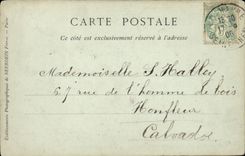 CARTE POSTALE
Ce côté est exclusivement réservé à l'adresse
Mademoiselle S. Halley
67 rue de l'homme de bois
Honfleur
Calvados
Établissements Photographiques de NEURDEIN Frères. — Paris